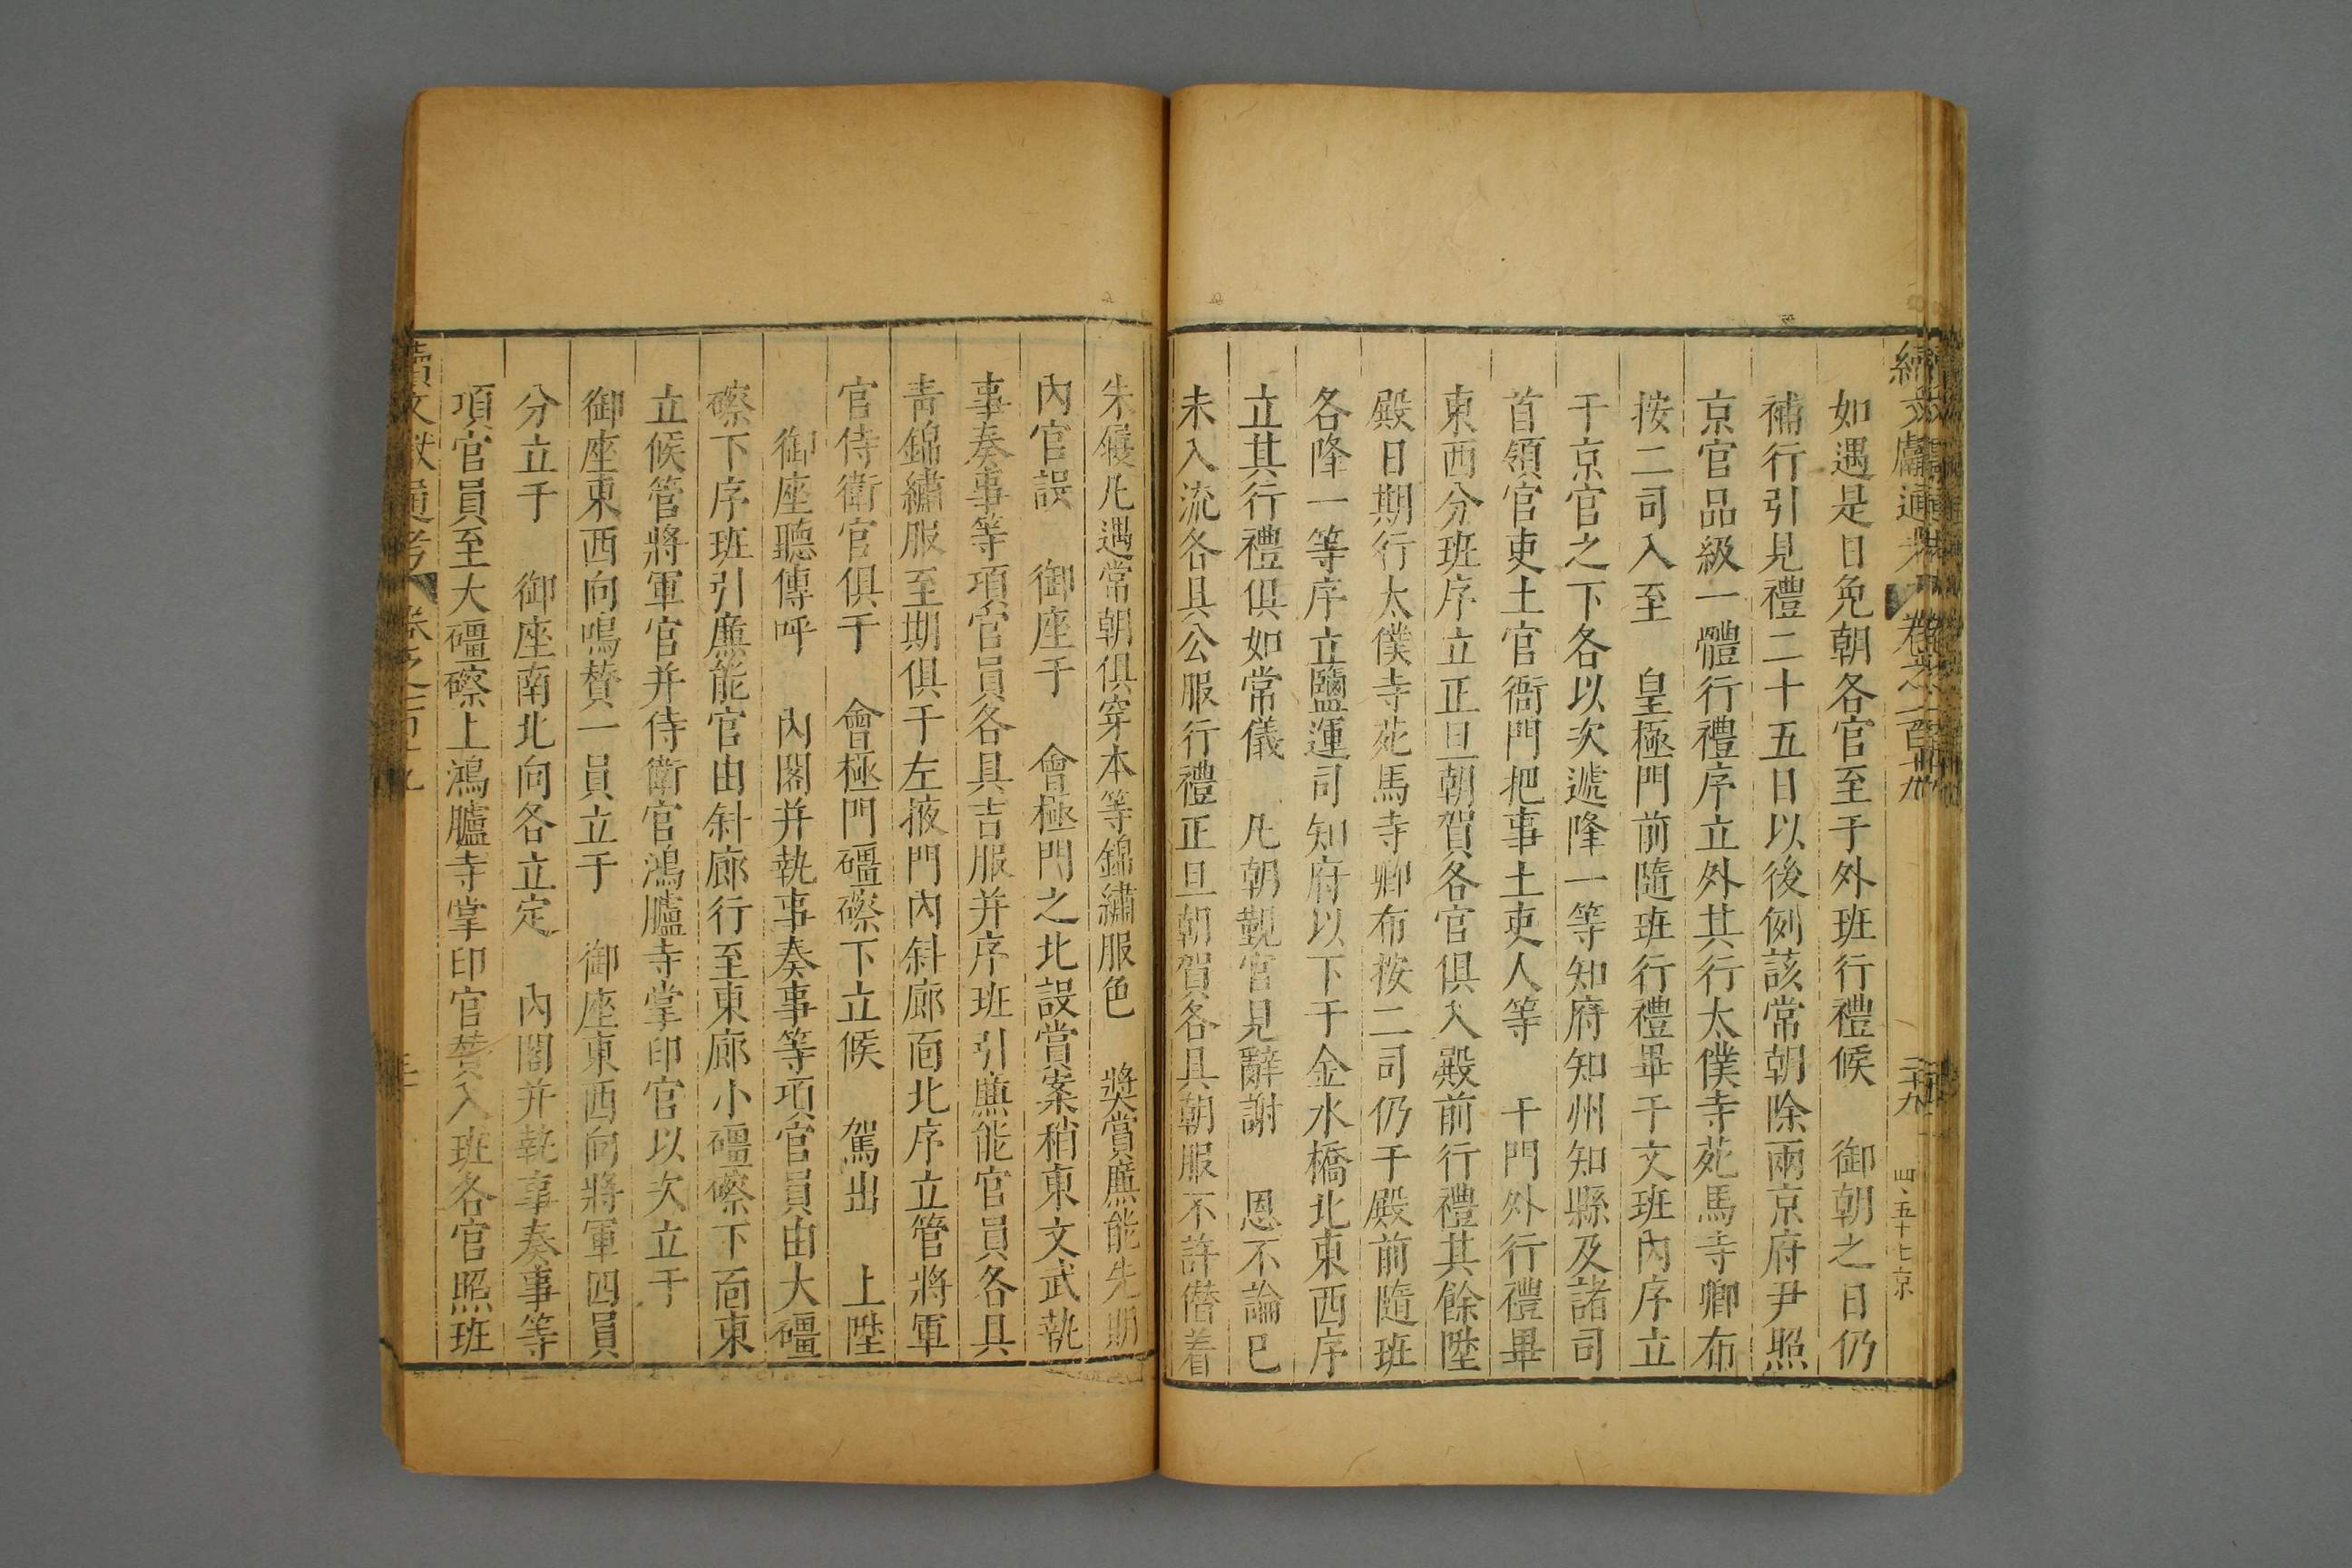 續文獻通考 卷之一百十九 二十九 四五十七 京
如遇是日免朝各官至于外班行禮候 御朝之日仍
補行引見禮二十五日以後例該常朝除兩京府尹照
京官品級一體行禮序立外其行太僕寺苑馬寺卿布
按二司入至 皇極門前隨班行禮畢于文班內序立
于京官之下各以次遞降一等知府知州知縣及諸司
首領官吏土官衙門把事土吏人等 午門外行禮畢
東西分班序立正旦朝賀各官俱入殿前行禮其餘陞
殿日期行太僕寺苑馬寺卿布按二司仍于殿前隨班
各降一等序立鹽運司知府以下于金水橋北東西序
立其行禮俱如常儀 凡朝覲官見辭謝 恩不論已
未入流各具公服行禮正旦朝賀各具朝服不許僭着
朱履凡遇常朝俱穿本等錦繡服色 獎賞廉能先期
內官設 御座于 會極門之北設賞案稍東文武執
事奏事等項官員各具吉服并序班引廉能官員各具
青錦繡服至期俱于左掖門內斜廊面北序立管將軍
官侍衛官俱于 會極門礓磜下立候 駕出 上陞
御座聽傳呼 內閣并執事奏事等項官員由大礓
磜下序班引廉能官由斜廊行至東廊小礓磜下面東
立候管將軍官并侍衛官鴻臚寺掌印官以次立于
御座東西向鳴贊一員立于 御座東西向將軍四員
分立于 御座南北向各立定 內閣并執事奏事等
項官員至大礓磜上鴻臚寺掌印官贊入班各官照班
續文獻通考 卷之一百十九